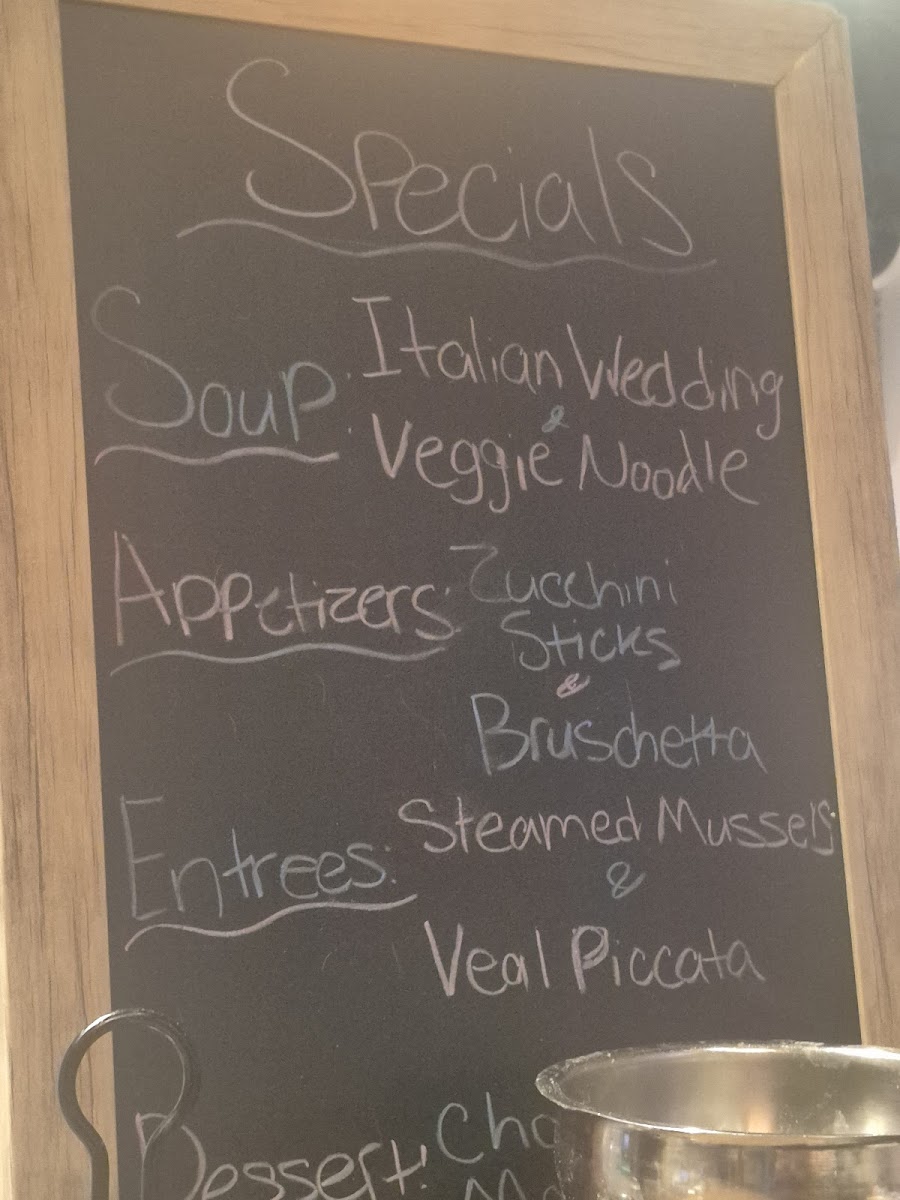 Specials
Soup: Italian Wedding
&
Veggie Noodle
Appetizers: Zucchini
Sticks
&
Bruschetta
Entrees: Steamed Mussels
&
Veal Piccata
Dessert: